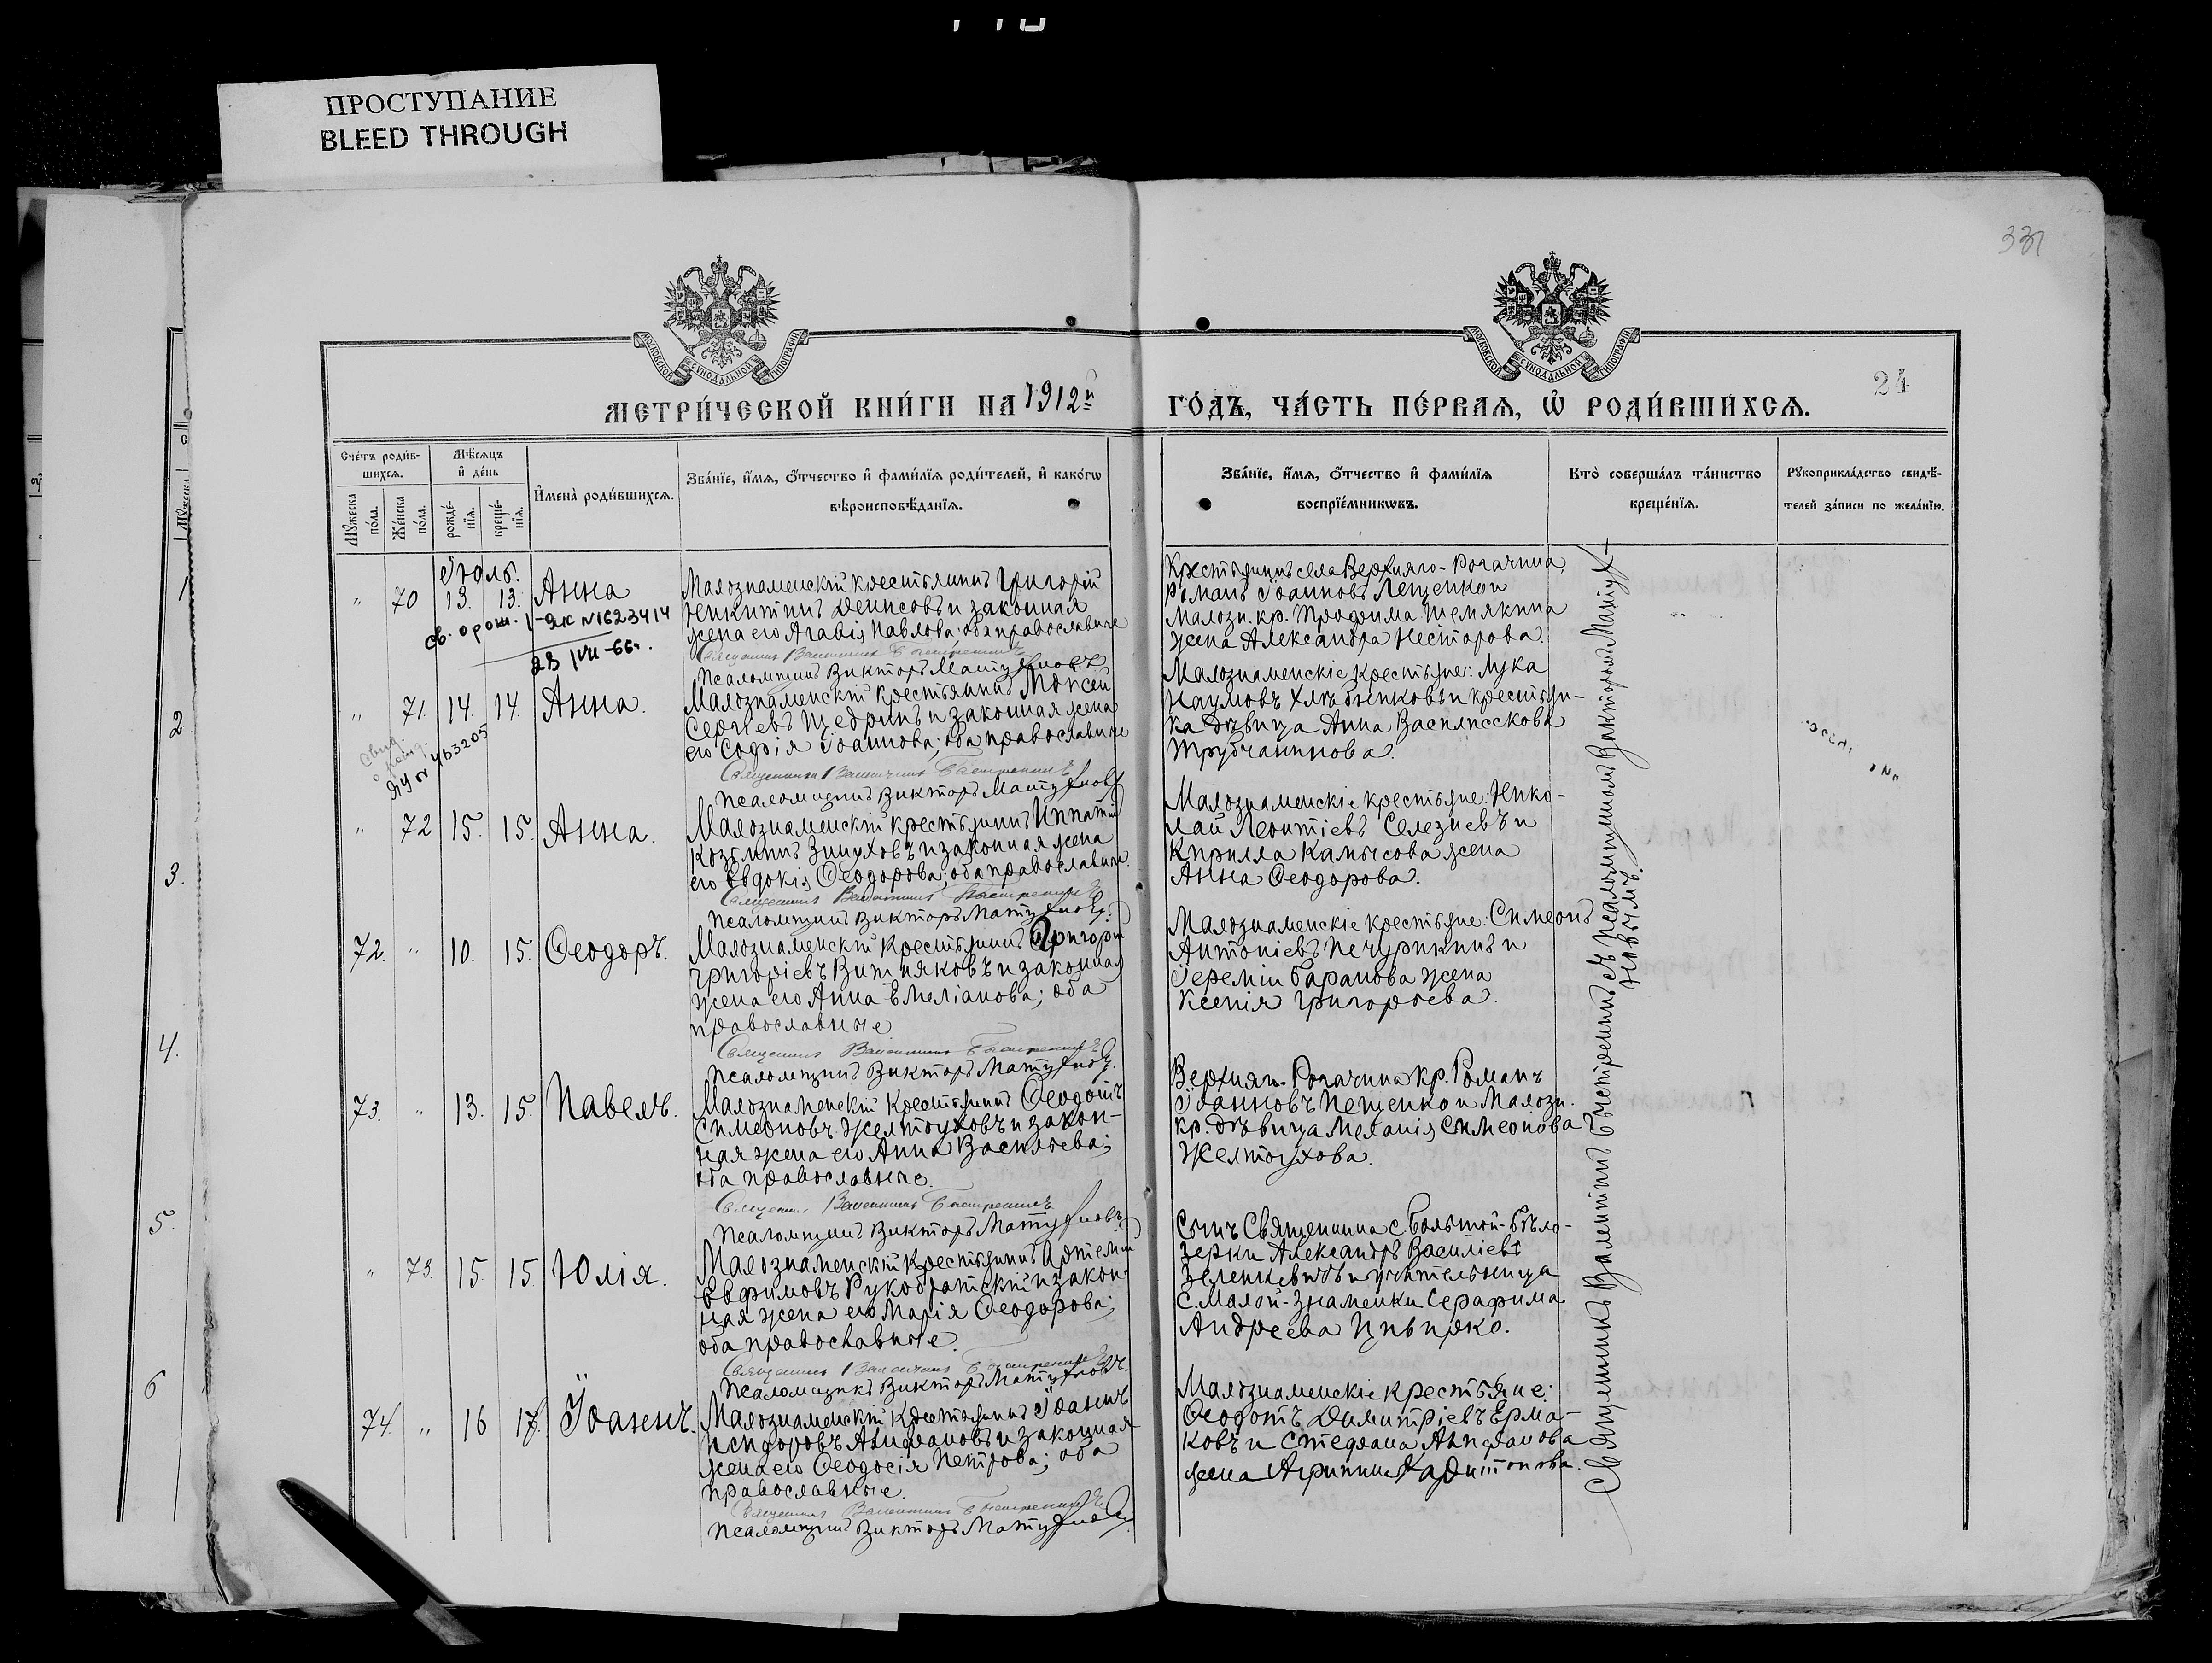 ПРОСТУПАНИЕ
BLEED THROUGH
331
24
МОСКОВСКОЙ СѴНОДАЛЬНОЙ ТИПОГРАФІИ
МОСКОВСКОЙ СѴНОДАЛЬНОЙ ТИПОГРАФІИ
МЕТРИ́ЧЕСКОЙ КНИ́ГИ НА 1912й ГО́ДЪ, ЧА́СТЬ ПЕ́РВАЯ, Ѡ҆ РОДИ́ВШИХСЯ.
Сче́тъ роди́в-
шихся.
Мѣ́сяцъ
и҆ де́нь
Мꙋ́жеска
по́ла.
Же́нска
по́ла.
рожде́-
нїя.
креще́-
нїя.
И҆мена̀ роди́вшихся.
Зва́нїе, и҆́мя, ѻ҆́тчество и҆ фами́лїя роди́телей, и҆ како́гѡ
вѣроисповѣ́данїя.
Зва́нїе, и҆́мя, ѻ҆́тчество и҆ фами́лїя
воспрїе́мникѡвъ.
Кто̀ соверша́лъ та́инство
креще́нїя.
Рꙋкоприкла́дство свидѣ́-
телей за́писи по жела́нїю.
Іюль.
" 70 13. 13. Анна
св. о рож. I-ЯК №1623414
28/VII-66г.
Малознаменскій крестьянинъ Григорій
Никитинъ Денисовъ и законная
жена его Агавія Павлова; оба православные
Священникъ Валентинъ Быстреницъ
Псаломщикъ Викторъ Матухновъ
Крестьянинъ села Верхняго-Рогачика,
Романъ Іоанновъ Лещенко и
Малозн. кр. Трофима Шемякина
жена Александра Несторова.
" 71. 14. 14. Анна.
463205
Малознаменскій крестьянинъ Моисей
Сергіевъ Щедринъ и законная жена
его Софія Іоаннова; оба православные
Священникъ Валентинъ Быстреницъ
Псаломщикъ Викторъ Матухновъ
Малознаменскіе крестьяне: Лука
Наумовъ Хлѣбниковъ и крестьян-
ка дѣвица Анна Василисскова
Трубчанинова.
" 72 15. 15. Анна.
Малознаменскій крестьянинъ Ипатій
Козьминъ Зинуховъ и законная жена
его Евдокія Ѳеодорова; оба православные.
Священникъ Валентинъ Быстреницъ
Псаломщикъ Викторъ Матухновъ.
Малознаменскіе крестьяне: Нико-
лай Леонтіевъ Селезневъ и
Кирилла Камысова жена
Анна Ѳеодорова.
72. " 10. 15. Ѳеодоръ.
Малознаменскій крестьянинъ Григорій
Григоріевъ Вишняковъ и законная
жена его Анна Емеліанова; оба
православные
Священникъ Валентинъ Быстреницъ
Псаломщикъ Викторъ Матухновъ.
Малознаменскіе крестьяне: Симеонъ
Антоніевъ Печурикинъ и
Іереміи Баранова жена
Ксенія Григорьева.
73. " 13. 15. Павелъ.
Малознаменскій крестьянинъ Ѳеодотъ
Симеоновъ Желтоуховъ и закон-
ная жена его Анна Васильева;
оба православные.
Священникъ Валентинъ Быстреницъ
Псаломщикъ Викторъ Матухновъ
Верхняго-Рогачика кр. Романъ
Іоанновъ Лещенко и Малозн.
кр. дѣвица Меланія Симеонова
Желтоухова.
" 73. 15. 15. Юлія.
Малознаменскій крестьянинъ Артемій
Евфимовъ Рукобратскій и закон-
ная жена его Марія Ѳеодорова;
оба православные.
Священникъ Валентинъ Быстреницъ
Псаломщикъ Викторъ Матухновъ.
Сынъ Священника с. Большой-Бѣло-
зерки Александръ Василіевъ
Зеленкевичъ и учительница
с. Малой-Знаменки Серафима
Андреева Цивирко.
74. " 16 17. Іоаннъ.
Малознаменскій крестьянинъ Іоаннъ
Исидоровъ Анифановъ и законная
жена его Ѳеодосія Петрова; оба
православные.
Священникъ Валентинъ Быстреницъ
Псаломщикъ Викторъ Матухновъ
Малознаменскіе крестьяне:
Ѳеодотъ Димитріевъ Ерма-
ковъ и Стефана Анифанова
жена Агрипина Харитонова.
Священникъ Валентинъ Быстреницъ съ псаломщикомъ Викторомъ Матух-
новымъ.
1
2
3.
4.
5.
6